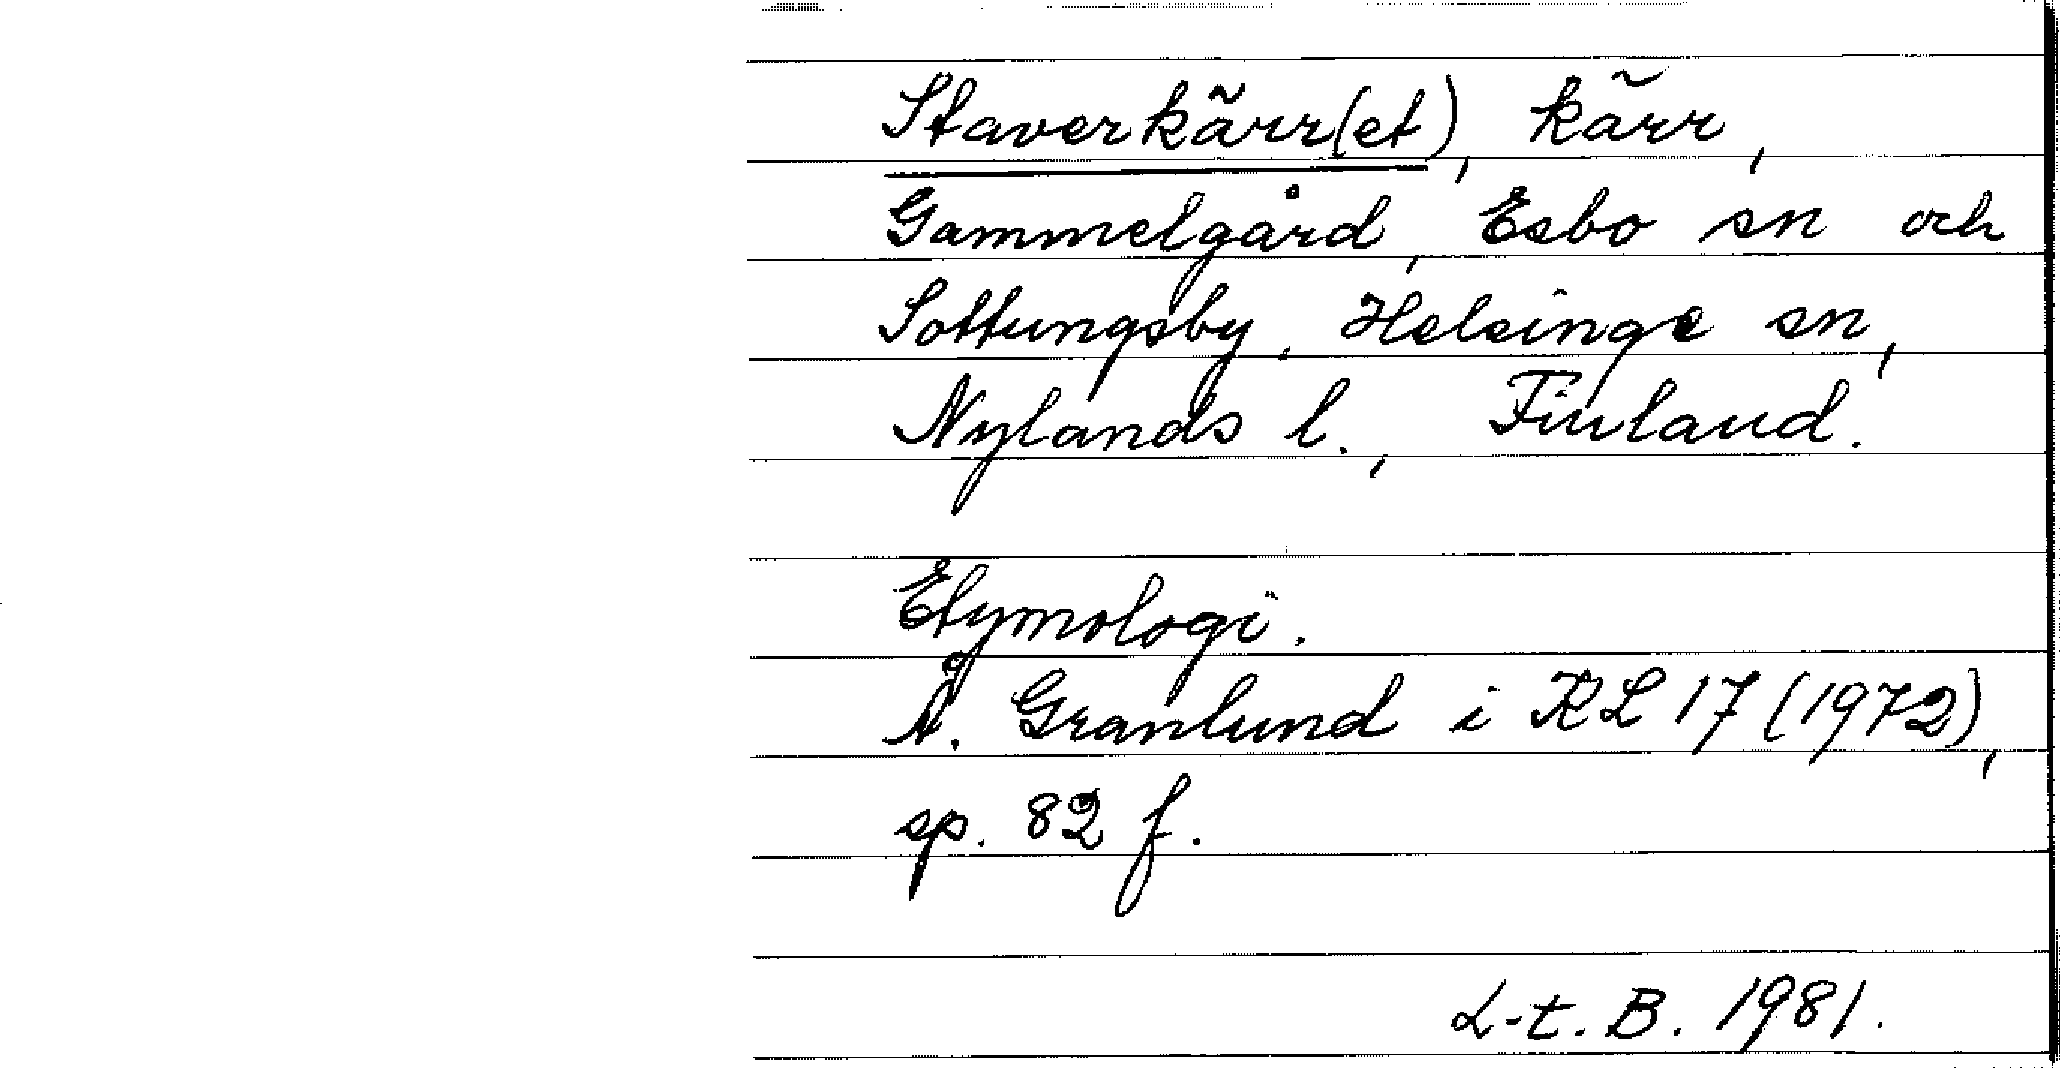 Staverkärr(et), kärr,
Gammelgård, Esbo sn och
Sottungsby, Helsinge sn,
Nylands l., Finland.
Etymologi.
Å. Granlund i KL 17 (1972),
sp. 82 f.
L-t. B. 1981.